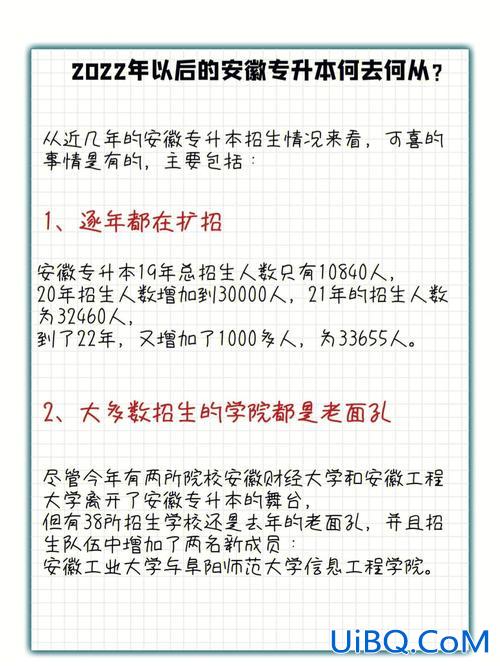 2022年以后的安徽专升本何去何从?
从近几年的安徽专升本招生情况来看，可喜的
事情是有的，主要包括：
1、逐年都在扩招
安徽专升本19年总招生人数只有10840人，
20年招生人数增加到30000人，21年的招生人数
为32460人，
到了22年，又增加了1000多人，为33655人。
2、大多数招生的学院都是老面孔
尽管今年有两所院校安徽财经大学和安徽工程
大学离开了安徽专升本的舞台，
但有38所招生学校还是去年的老面孔，并且招
生队伍中增加了两名新成员：
安徽工业大学与阜阳师范大学信息工程学院。
UiBQ.CoM